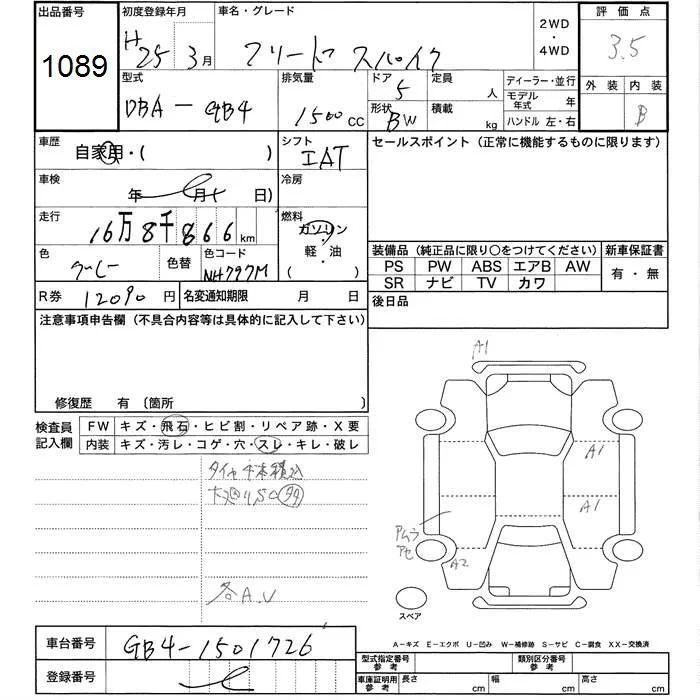 出品番号 初度登録年月 車名・グレード 2WD・4WD 評価点
1089 H25 3月 フリード スパイク 3.5
型式 排気量 ドア 5 定員 人 ディーラー・並行 外装 内装
DBA-GB4 1500 CC 形状 BW 積載 kg モデル年式 年 B
ハンドル 左・右
車歴 自家用・( ) シフト IAT セールスポイント(正常に機能するものに限ります)
車検 年 月 日) 冷房
走行 16万8千866km 燃料 ガソリン
軽・油
( )
色 グレー 色替 色コード NH797M
装備品(純正品に限り○をつけてください) 新車保証書
PS PW ABS エアB AW 有・無
SR ナビ TV カワ
R券 12090円 名変通知期限 月 日 後日品
注意事項申告欄(不具合内容等は具体的に記入して下さい)
修復歴 有 〔箇所
検査員記入欄 FW キズ・飛石・ヒビ割・リペア跡・X要
内装 キズ・汚レ・コゲ・穴・スレ・キレ・破レ
タイヤ4本積込
各A.V
A1
A1
A1
A2
スペア
A-キズ E-エクボ U-凹み W-補修跡 S-サビ C-腐食 XX-交換済
車台番号 GB4-1501726
登録番号
型式指定番号 参考 類別区分番号 参考
車庫証明用 参考 長さ cm 幅 cm 高さ cm